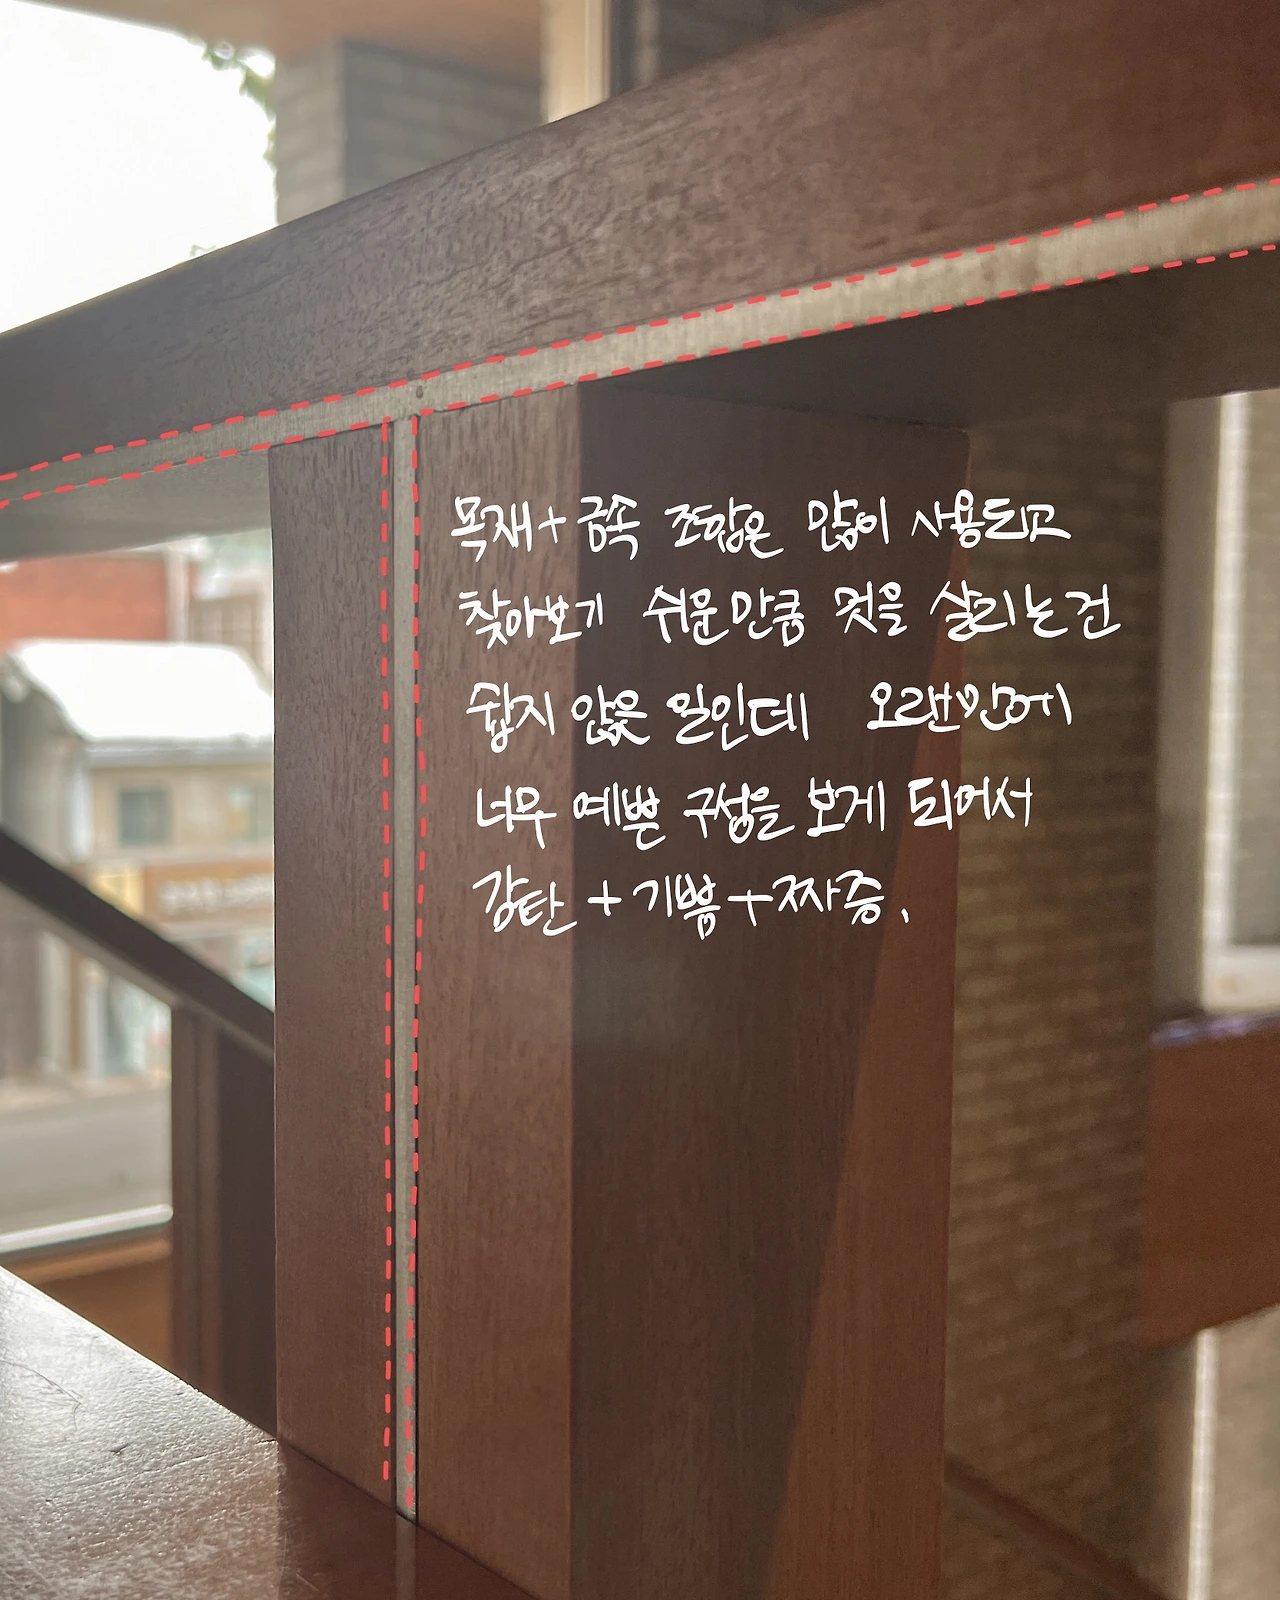 목재+금속 조합은 많이 사용되고
찾아보기 쉬운만큼 멋을 살리는건
쉽지 않은 일인데 오랜만에
너무 예쁜 구성을 보게 되어서
감탄 + 기쁨 + 짜증.